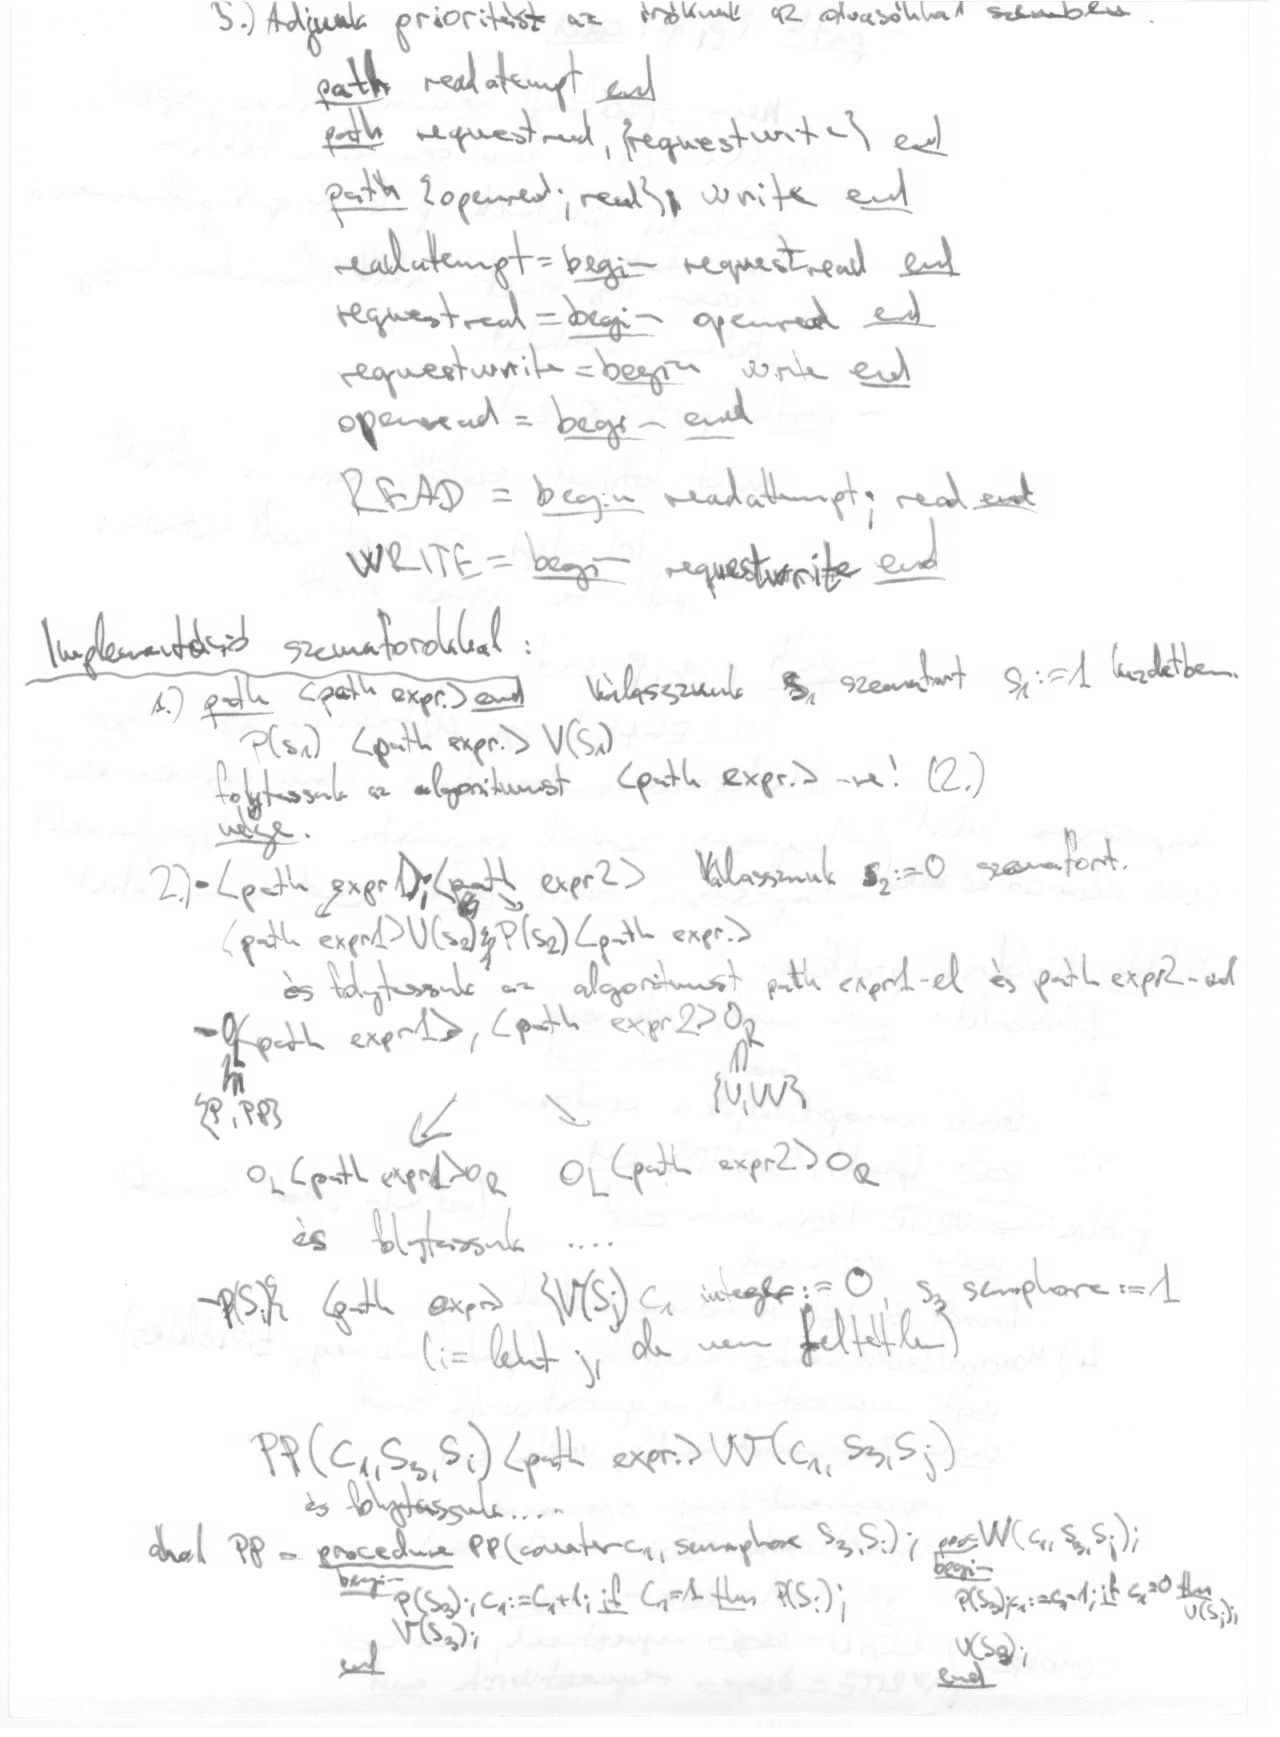 5.) Adjunk prioritást az íróknak az olvasókkal szemben.
path readatempt end
path requestread, {requestwrite} end
path {openread; read}, write end
readattempt = begin requestread end
requestread = begin openread end
requestwrite = begin write end
openread = begin end
READ = begin readattempt; read end
WRITE = begin requestwrite end
Implementáció szemaforokkal:
1.) path <path expr.> end Válasszunk s₁ szemafort s₁:=1 kezdetben.
P(s₁) <path expr.> V(s₁)
folytassuk az algoritmust <path expr.>-re! (2.)
vége.
2.) - <path expr1>;<path expr2> Válasszunk s₂:=0 szemafort.
<path expr1>V(s₂) P(s₂)<path expr.>
és folytassuk az algoritmust path expr1-el és path expr2-vel
- O_L<path expr1>, <path expr2>O_R
{P, PP} {V, VV}
O_L<path expr1>O_R O_L<path expr2>O_R
és folytassuk ....
- P(Sᵢ){ <path expr> }V(Sⱼ) c₁ integer:=0, s₃ semaphore:=1
(i = lehet j, de nem feltétlen)
PP(c₁,S₃,Sᵢ)<path expr.>VV(c₁,S₃,Sⱼ)
és folytassuk....
ahol PP = procedure PP(counter c₁, semaphore S₃,Sᵢ); VV(c₁,S₃,Sⱼ);
begin begin
P(S₃); c₁:=c₁+1; if c₁=1 then P(Sᵢ); P(S₃); c₁:=c₁-1; if c₁=0 then V(Sⱼ);
V(S₃); V(S₃);
end end